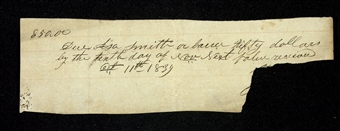 $50.00
Due Asa Smith or barer fifty dollars
by the tenth day of Nov Next Value received
Oct 11th 1839